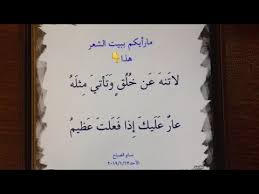 مارأيكم ببيت الشعر
هذا👇
لاتَنهَ عَن خُلُقٍ وَتَأتيَ مِثلَهُ
عارٌ عَلَيكَ إذا فَعَلتَ عَظيمُ